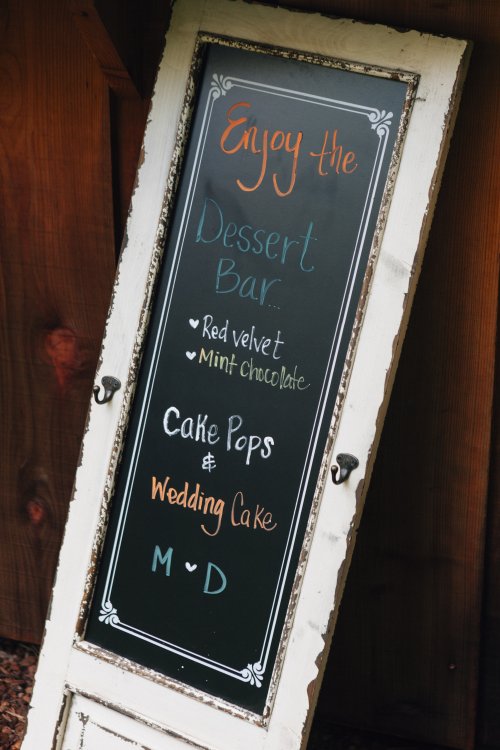 Enjoy the
Dessert
Bar...
♥ Red velvet
♥ Mint chocolate
Cake Pops
&
Wedding Cake
M ♥ D